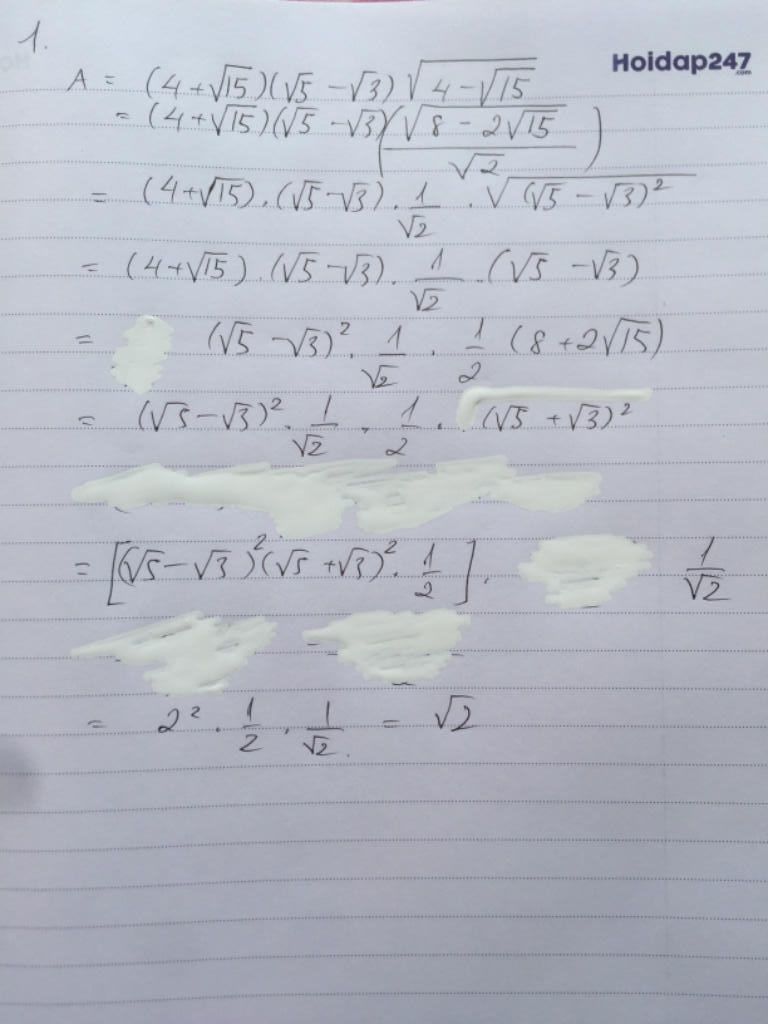 1.
Hoidap247
.com
A = (4+√15)(√5 −√3)√(4−√15)
= (4+√15)(√5 −√3)(√(8 − 2√15)/√2)
= (4+√15).(√5−√3).1/√2 . √((√5 − √3)²)
= (4+√15).(√5−√3). 1/√2 .(√5 −√3)
= (√5 −√3)². 1/√2 . 1/2 (8 +2√15)
= (√5−√3)². 1/√2 . 1/2 . (√5 +√3)²
= [(√5−√3)²(√5 +√3)². 1/2]. 1/√2
= 2² . 1/2 . 1/√2. = √2